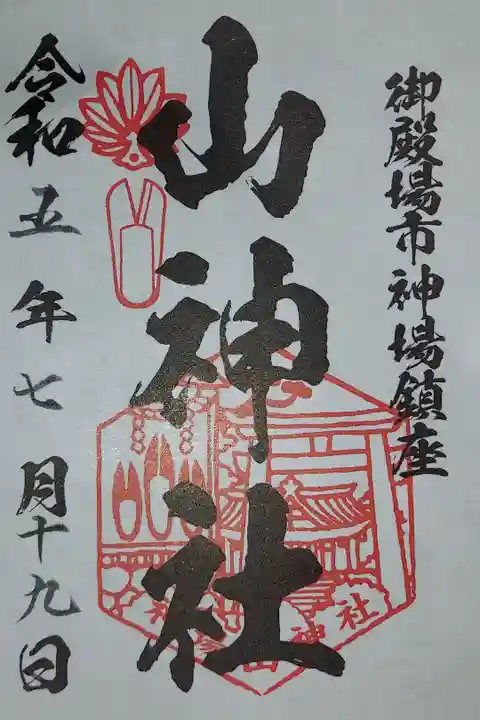 御殿場市神場鎮座
山神社
令和五年七月十九日
山神社